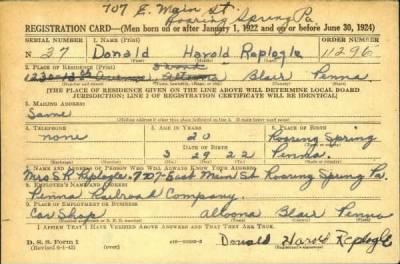 707 E. Main St.
Roaring Spring Pa
REGISTRATION CARD—(Men born on or after January 1, 1922 and on or before June 30, 1924)
SERIAL NUMBER 1. NAME (Print) ORDER NUMBER
N 37 Donald Harold Replogle 11296
2. PLACE OF RESIDENCE (Print)
Altoona Blair Penna
(THE PLACE OF RESIDENCE GIVEN ON THE LINE ABOVE WILL DETERMINE LOCAL BOARD
JURISDICTION; LINE 2 OF REGISTRATION CERTIFICATE WILL BE IDENTICAL)
3. MAILING ADDRESS
Same
4. TELEPHONE 5. AGE IN YEARS 6. PLACE OF BIRTH
none 20 Roaring Spring
DATE OF BIRTH
3 29 22 Penna.
7. NAME AND ADDRESS OF PERSON WHO WILL ALWAYS KNOW YOUR ADDRESS
Replogle 707 East Main St Roaring Spring Pa.
8. EMPLOYER'S NAME AND ADDRESS
Penna Railroad Company.
9. PLACE OF EMPLOYMENT OR BUSINESS
Car Shop Altoona Blair Penna
I AFFIRM THAT I HAVE VERIFIED ABOVE ANSWERS AND THAT THEY ARE TRUE.
D. S. S. Form 1
(Revised 6-1-42)
Donald Harold Replogle